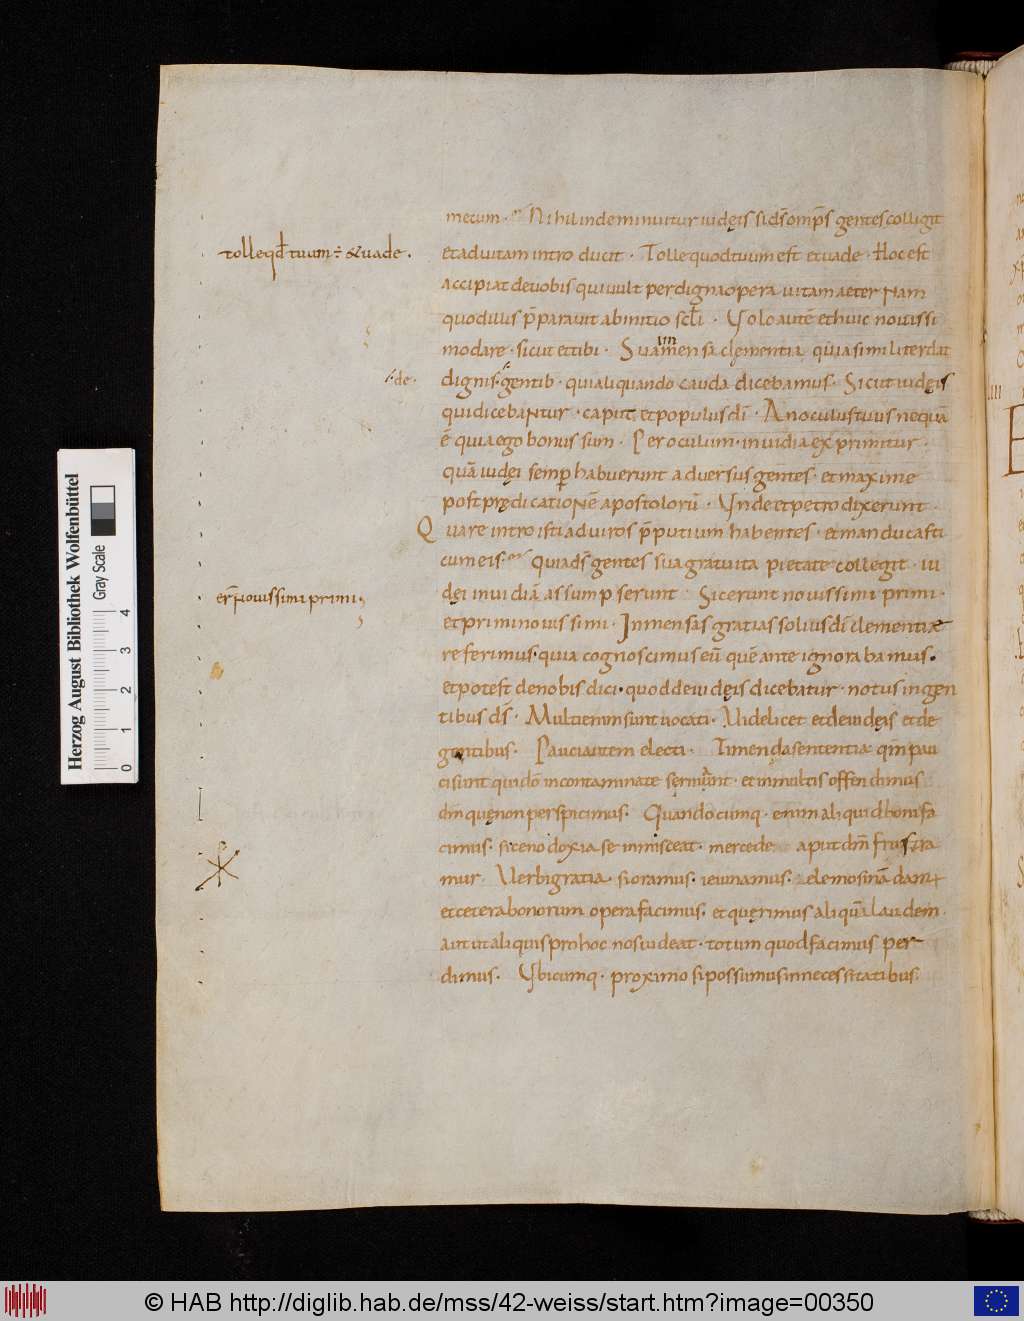 mecum · Nihil inde minuitur iudęis si ds̄ omp̄s gentes colligit
tolle qđ tuum ÷ & uade ·
et ad uitam intro ducit · Tolle quod tuum est et uade · Hoc est
accipiat de uobis qui uult per digna opera uitam aeternam
quod iuis p̄parauit ab initio scl̄i · Volo autē et huic nouissi
mo dare · sicut et tibi · Sua inmensa clementia quia similiter dat
· de ·
dignis · gentib · qui aliquando cauda dicebamus · Sicut iudęis
qui dicebantur · caput et populus dī · An oculus tuus nequā
ē quia ego bonus sum · Per oculum · inuidia exprimitur ·
quā iudęi semper habuerunt aduersus gentes · et maxime
post prędicationē apostolorū · Vnde et petro dixerunt ·
Quare introisti ad uiros p̄putium habentes · et manducasti
cum eis · Quia ds̄ gentes sua gratuita pietate collegit · iu
er̄ nouissimi primi
dęi inuidiā assumpserunt : Sic erunt nouissimi primi ·
et primi nouissimi · Inmensas gratias solius dī clementiæ
referimus · quia cognoscimus eū quē ante ignorabamus ·
et potest de nobis dici · quod de iudęis dicebatur · notus in gen
tibus ds̄ · Multi enim sunt uocati · Videlicet et de iudęis et de
gentibus · Pauci autem electi · Timenda sententia qm̄ pau
ci sunt qui dō incontaminate seruiunt · et in multis offendimus
dm̄ quę non perspicimus · Quandocumq · enim aliquid boni fa
cimus · si cenodoxia se inmisceat · mercede aput dm̄ frustra
mur · Verbi gratia · si oramus · ieiunamus · elemosinā damus
et cetera bonorum opera facimus · et quęrimus aliquā laudem
aut ut aliquis pro hoc nos uideat · totum quod facimus per
dimus · Vbicumq · proximo si possumus in necessitatibus
Herzog August Bibliothek Wolfenbüttel
Gray Scale
0 1 2 3 4
© HAB http://diglib.hab.de/mss/42-weiss/start.htm?image=00350